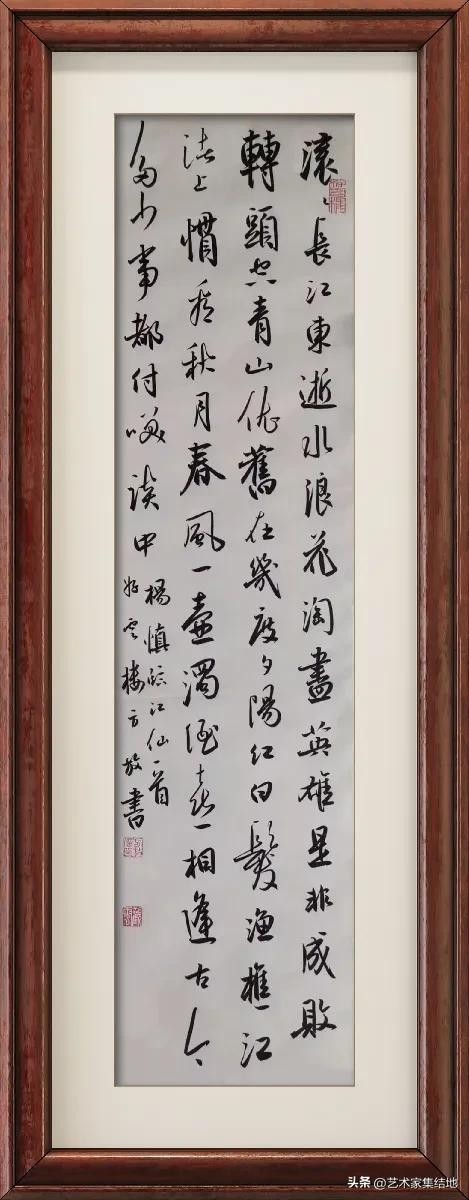 滚〻長江東逝水浪花淘盡英雄是非成敗
轉頭空青山依舊在幾度夕陽紅白髮漁樵江
渚上慣看秋月春風一壺濁酒喜相逢古今
多少事都付咲談中
楊慎臨江仙一首
好雲樓方放書
头条 @艺术家集结地